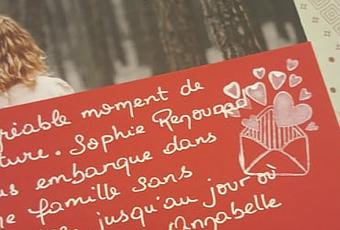 riable moment de
ture. Sophie Renouard
us embarque dans
ne famille sans
jusqu'au jour où
Annabelle